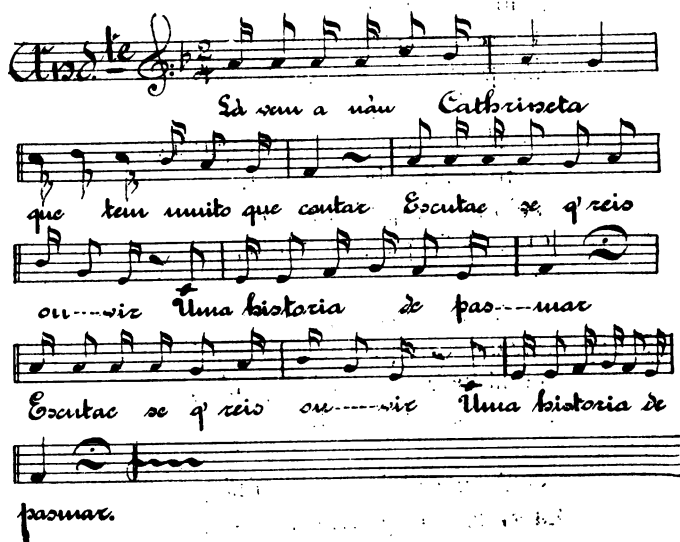 And.te 2/4
Lá vem a náu Cathrineta
que tem muito que contar Escutae se q'reis
ou----vir Uma historia de pas----mar
Escutae se q'reis ou-----vir Uma historia de
pasmar.